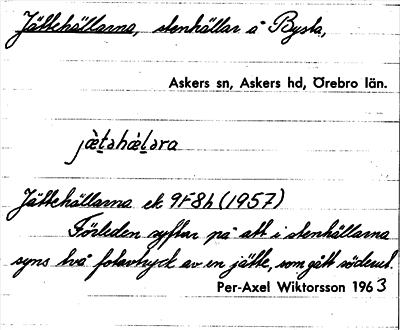 Jättehällarna, stenhällar å Bysta,
Askers sn, Askers hd, Örebro län.
jæ̀t̠əhæ̀l̠əra
Jättehällarna ek 9F8h (1957)
Förleden syftar på att i stenhällarna
syns två fotavtryck av en jätte, som gått söderut.
Per-Axel Wiktorsson 1963